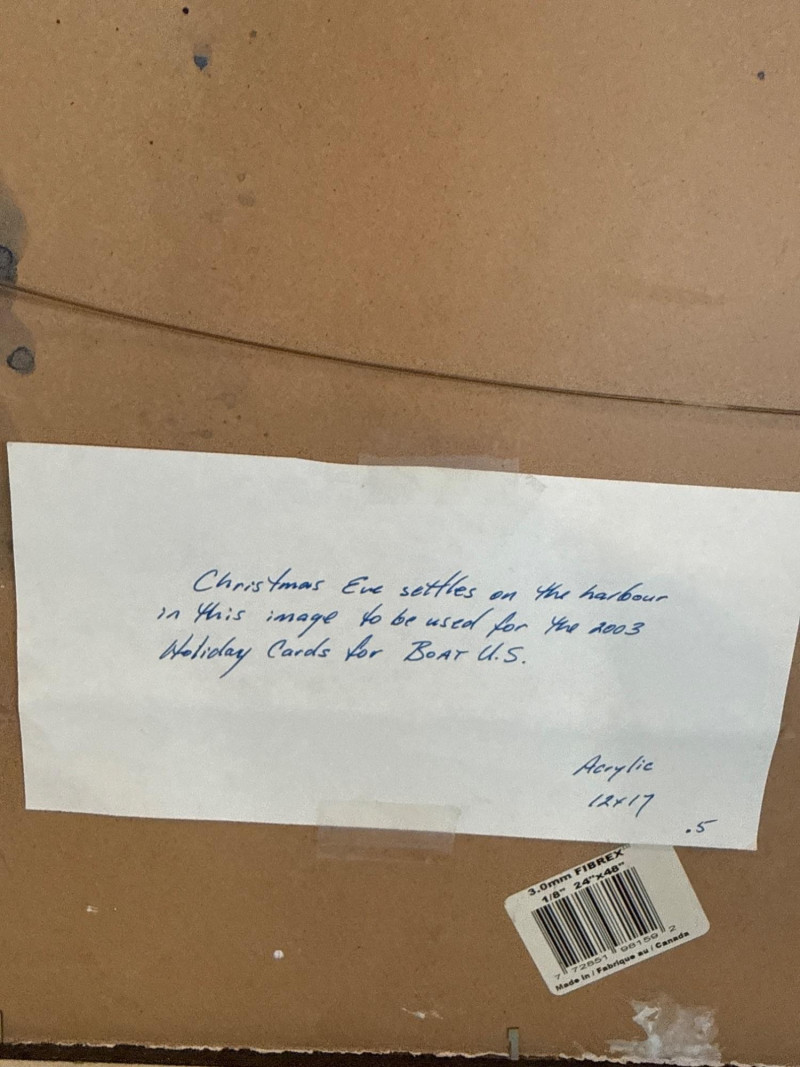 Christmas Eve settles on the harbour
in this image to be used for the 2003
Holiday Cards for BOAT U.S.
Acrylic
12x17
.5
3.0mm FIBREX
1/8" 24"x48"
7 72651 98159 2
Made in / Fabrique au / Canada